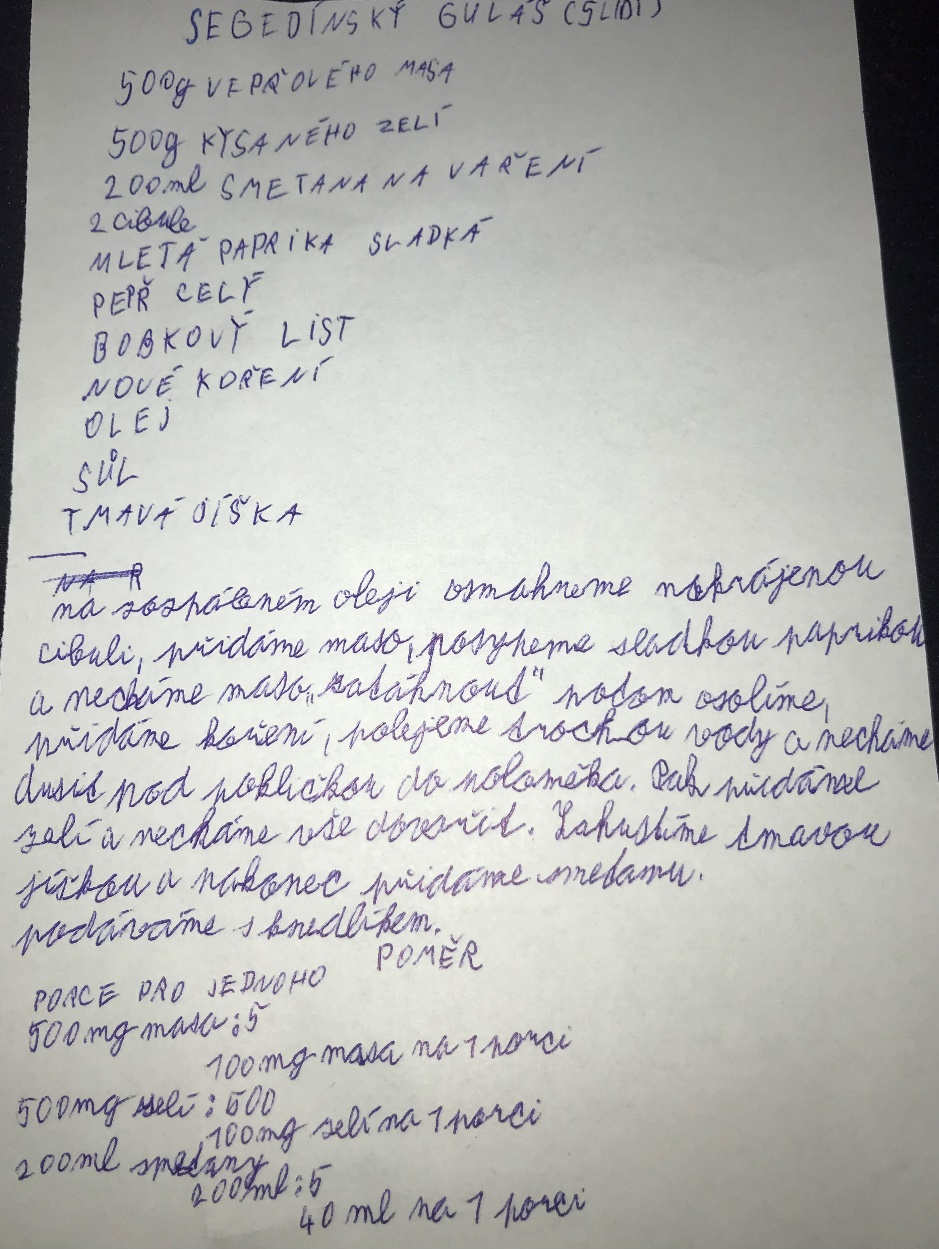 SEGEDÍNSKÝ GULÁŠ (5LIDÍ)
500g VEPŘOVÉHO MASA
500g KYSANÉHO ZELÍ
200ml SMETANA NA VAŘENÍ
2 cibule
MLETÁ PAPRIKA SLADKÁ
PEPŘ CELÝ
BOBKOVÝ LIST
NOVÉ KOŘENÍ
OLEJ
SŮL
TMAVÁ JÍŠKA
NA R
na rozpáleném oleji osmahneme nakrájenou
cibuli, přidáme maso, posypeme sladkou paprikou
a necháme maso „zatáhnout" potom osolíme,
přidáme koření, polejeme trochou vody a necháme
dusit pod pokličkou do poloměka. Pak přidáme
zelí a necháme vše dovařit. Zahustíme tmavou
jíškou a nakonec přidáme smetanu.
podáváme s knedlíkem.
PORCE PRO JEDNOHO POMĚR
500mg masa :5
100mg masa na 1 porci
500mg zelí : 500
100mg zelí na 1 porci
200ml smetany
200ml:5
40 ml na 1 porci